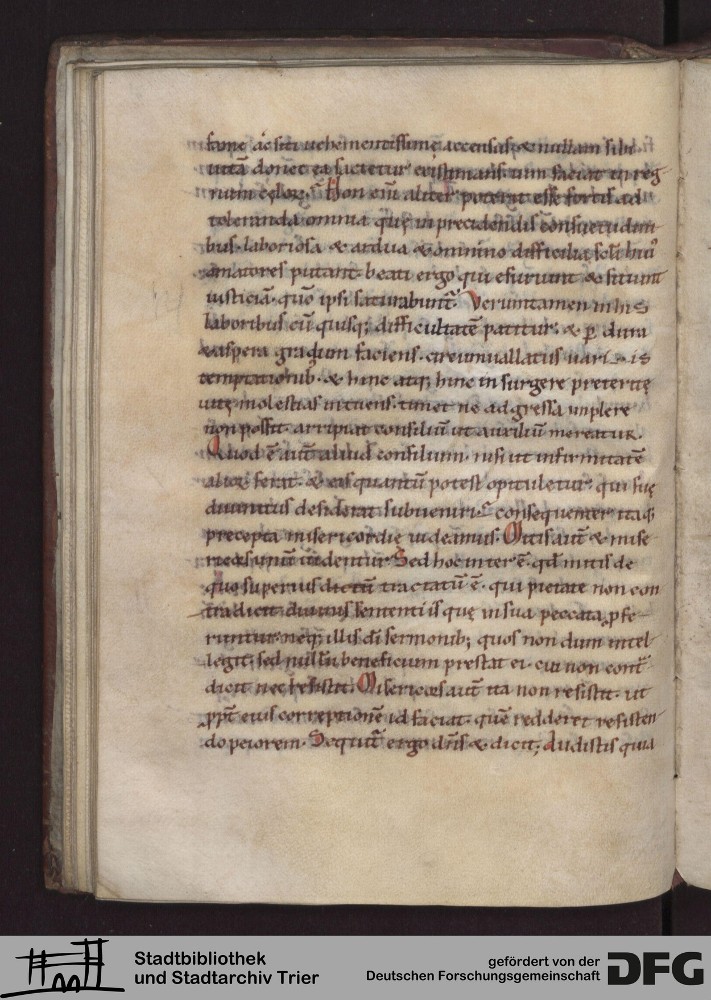 fame ac siti uehementissime accensas & nullam sibi
uitā donec ea sacietur existimans tum faciat in reg
num celor̄. Non enī aliter poterit esse fortis ad
toleranda omnia quę in precidendis consuetudini
bus. laboriosa & ardua & omnino difficilia soli huiꝰ
amatores putant. beati ergo qui esuriunt & sitiunt
iusticiā. quō ipsi saturabunt̄. Veruntamen in his
laboribus cū quisq; difficultatē patitur. & ꝑ dura
& aspera gradum faciens. circumuallatus uariis
temptationib. & hinc atq; hinc insurgere preteritę
uitę molestias intuens. timet ne adgressa implere
non possit. arripiat consiliū ut auxiliū mereatur.
Quod ē aut̄ aliud consilium. nisi ut infirmitatē
alior̄ ferat. & eis quantū potest opituletur. qui suę
diuinitus desiderat subueniri. consequenter itaq;
precepta misericordię uideamus. Mitis aut̄ & mise
ricors unū uidentur. Sed hoc inter ē. qđ mitis de
quo superius dictū tractatū ē. qui pietate non con
tradicit diuinis sententiis quę in sua peccata ꝓfe-
runtur. neq; illis dī sermonib; quos non dum intel-
legit. sed nullū beneficium prestat ei. cui non cont̄
dicit nec resistit. Misericors aut̄ ita non resistit. ut
ꝓpt̄ eius correptionē id faciat. quē redderet resisten-
do peiorem. Sequit̄ ergo dn̄s & dicit; Audistis quia
Stadtbibliothek
und Stadtarchiv Trier
gefördert von der
Deutschen Forschungsgemeinschaft
DFG